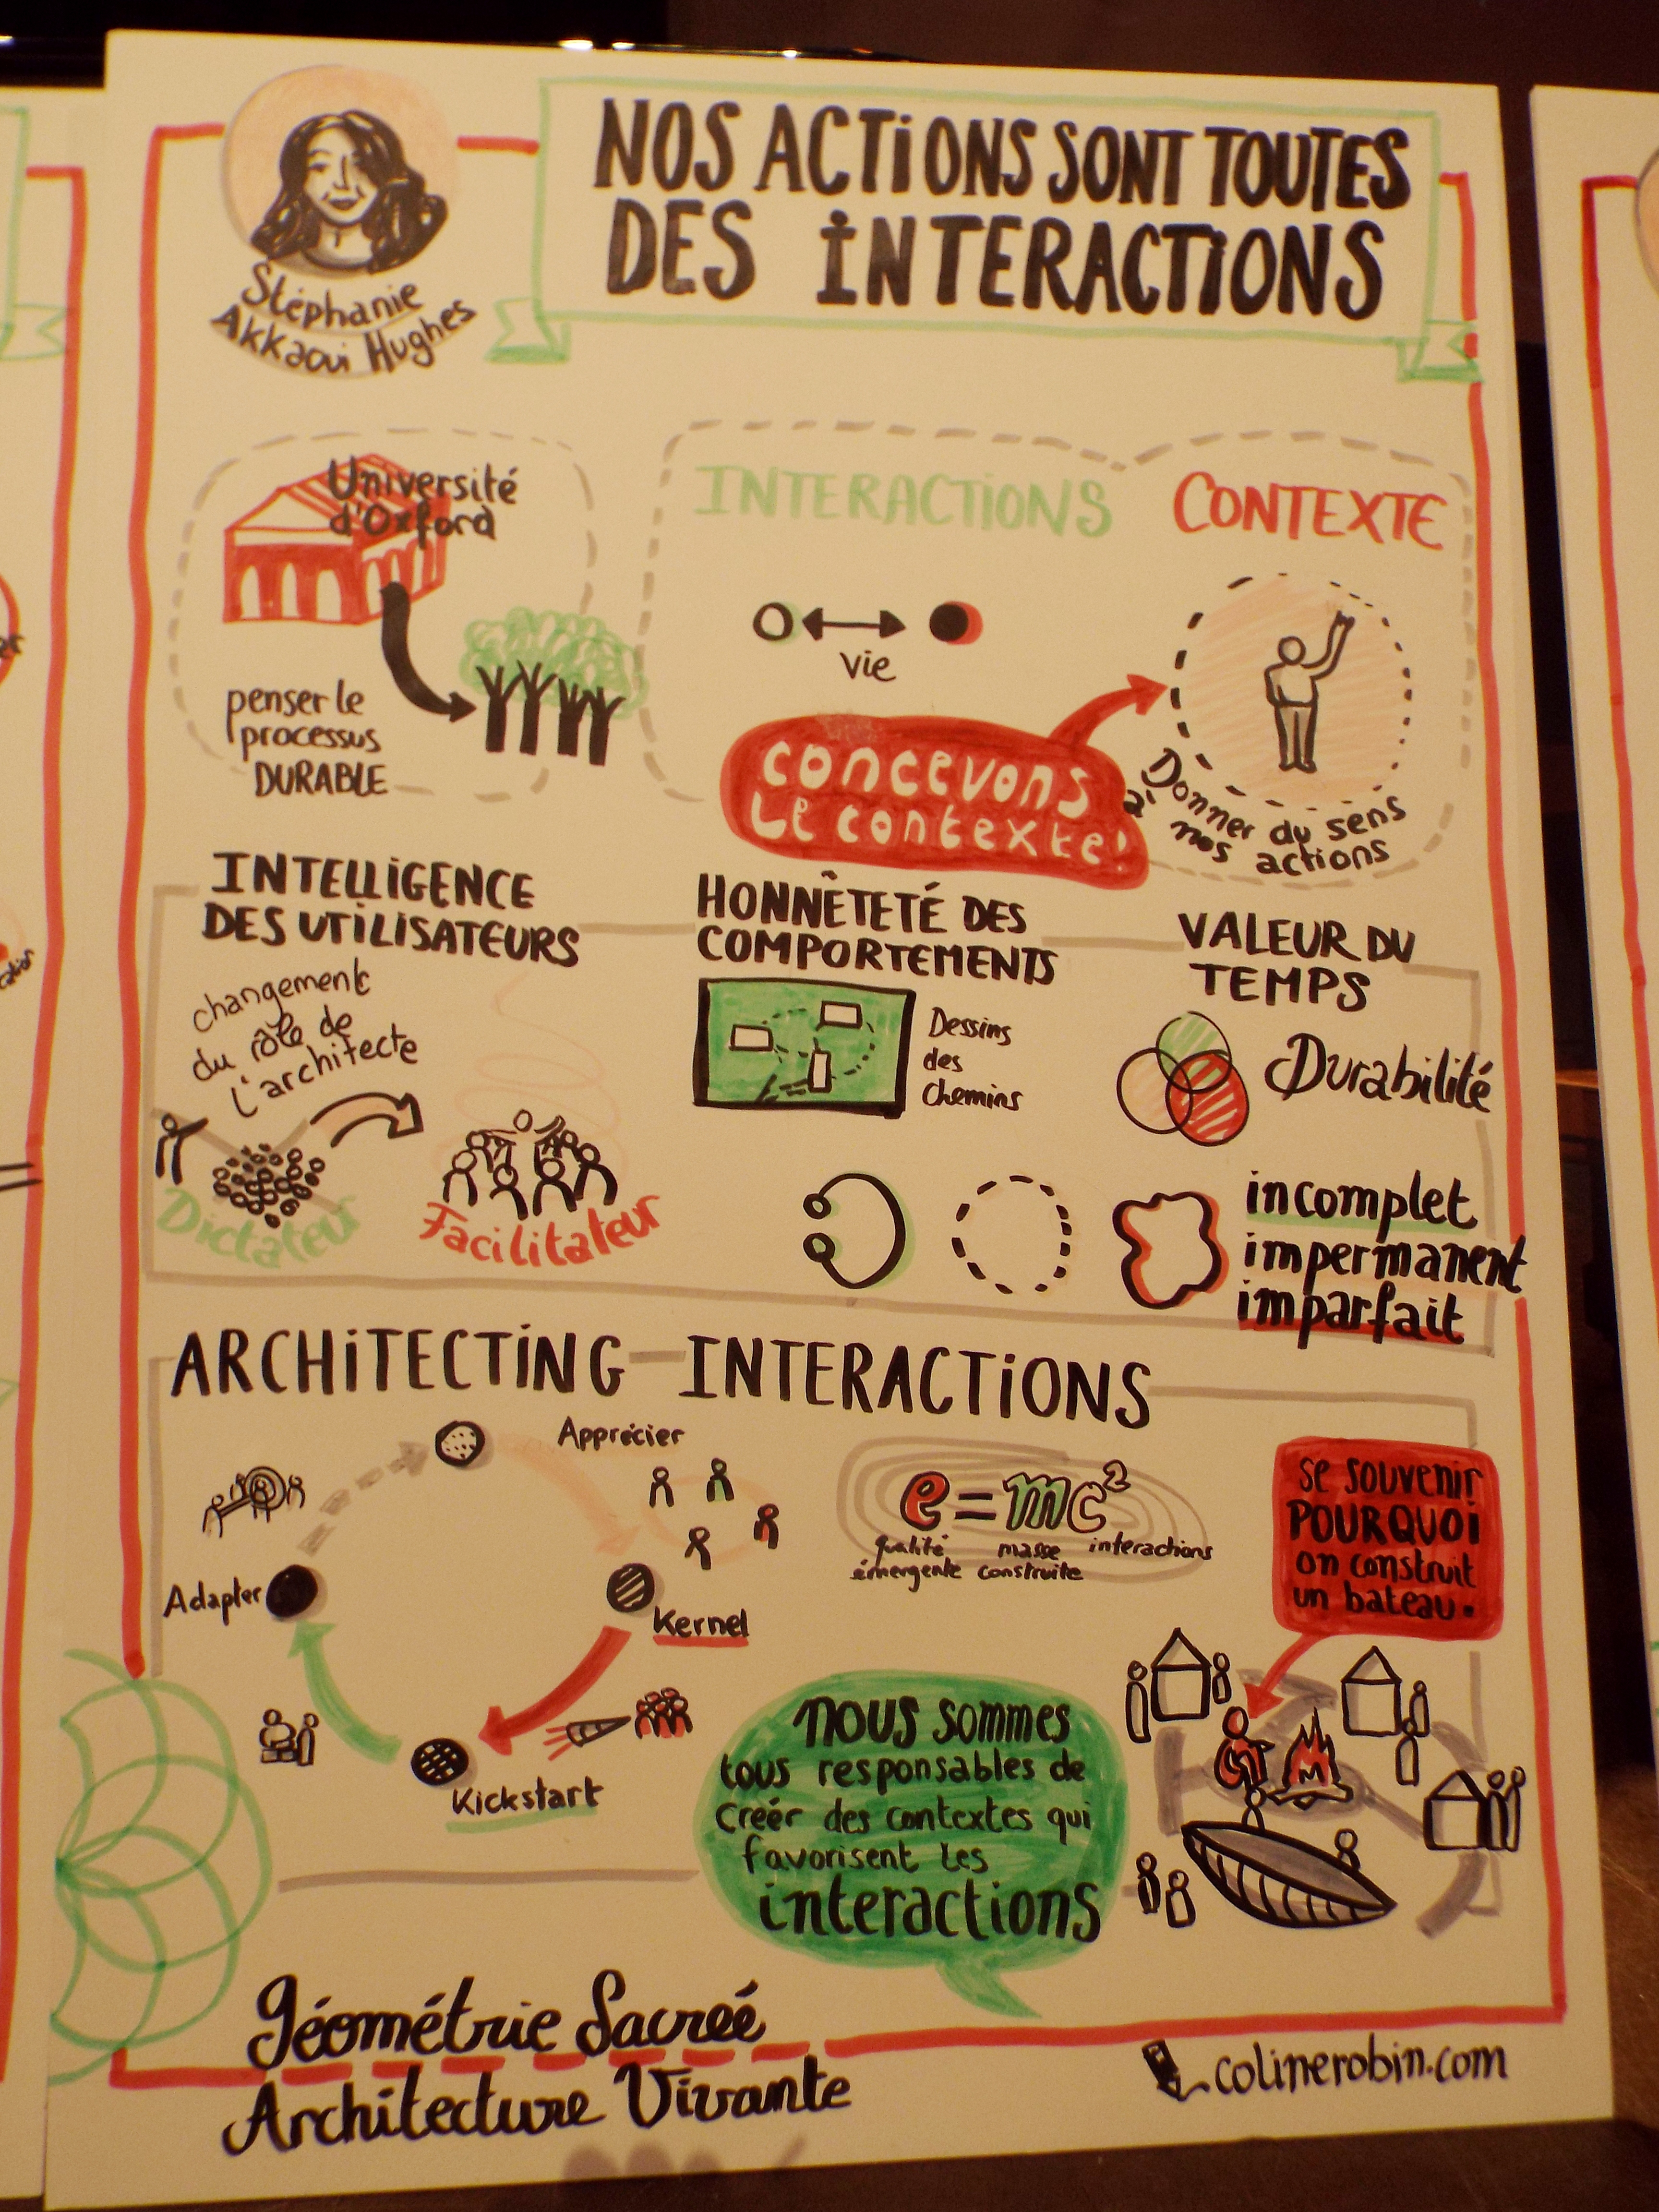 NOS ACTIONS SONT TOUTES
DES INTERACTIONS
Stéphanie
Akkaoui Hughes
Université
d'Oxford
penser le
processus
DURABLE
INTERACTIONS
CONTEXTE
vie
concevons
Le contexte!
Donner du sens
à nos actions
INTELLIGENCE
DES UTILISATEURS
changement
du rôle de
l'architecte
Dictateur
Facilitateur
HONNÊTETÉ DES
COMPORTEMENTS
Dessins
des
chemins
VALEUR DU
TEMPS
Durabilité
incomplet
impermanent
imparfait
ARCHITECTING INTERACTIONS
Apprécier
Adapter
Kernel
Kickstart
e=mc²
qualité
émergente
masse
construite
interactions
se souvenir
POURQUOI
on construit
un bateau.
nous sommes
tous responsables de
créer des contextes qui
favorisent les
interactions
Géométrie Sacréé
Architecture Vivante
colinerobin.com